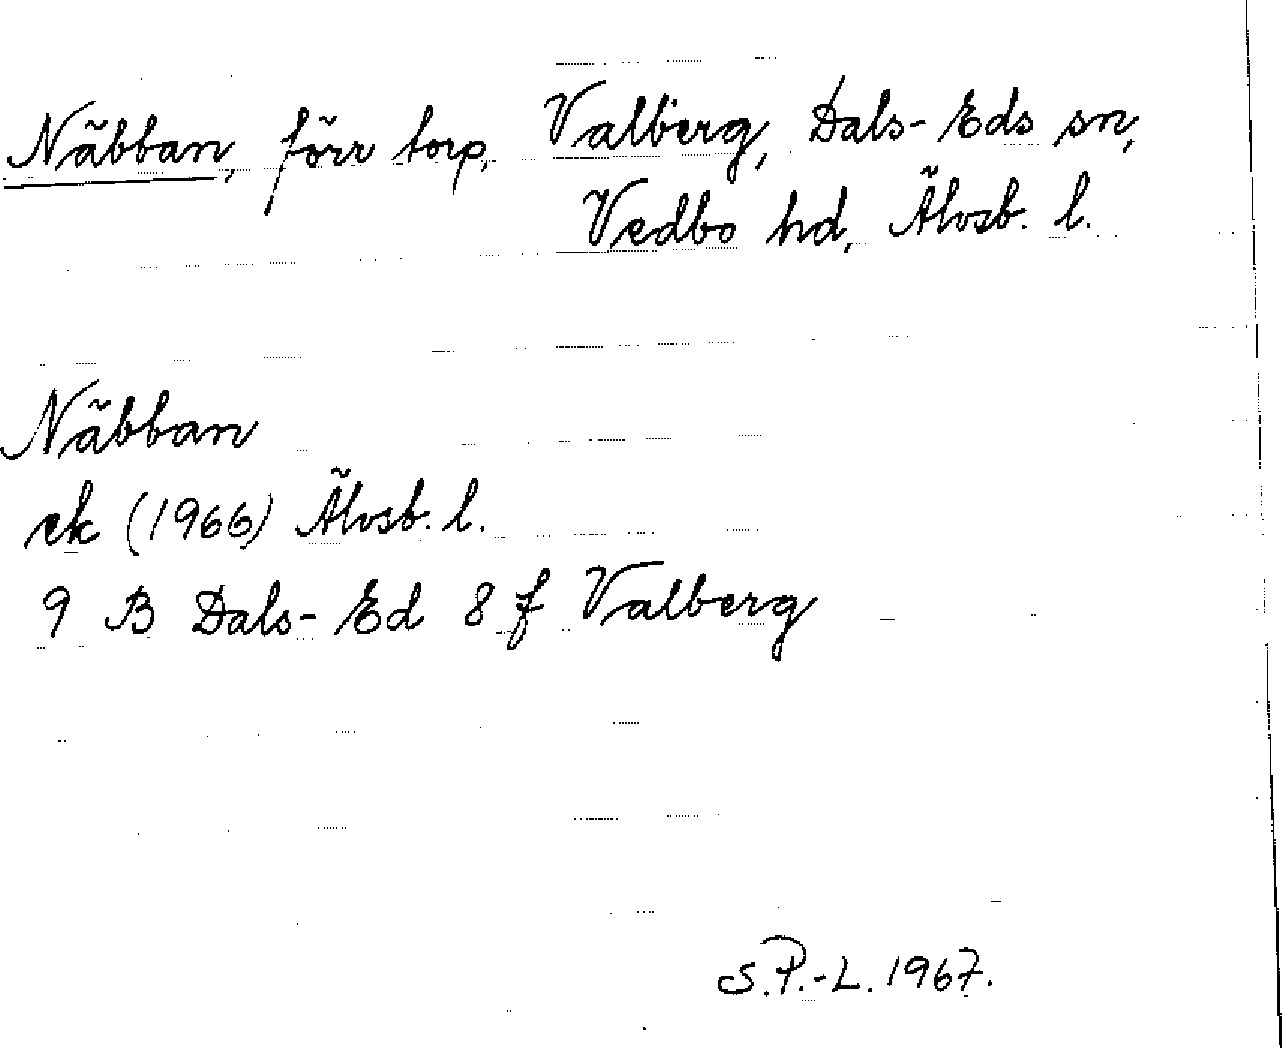 Näbban, förr torp, Valberg, Dals-Eds sn,
Vedbo hd, Älvsb. l.
Näbban
ek (1966) Älvsb. l.
9 B Dals-Ed 8 f Valberg
S.P.-L. 1967.